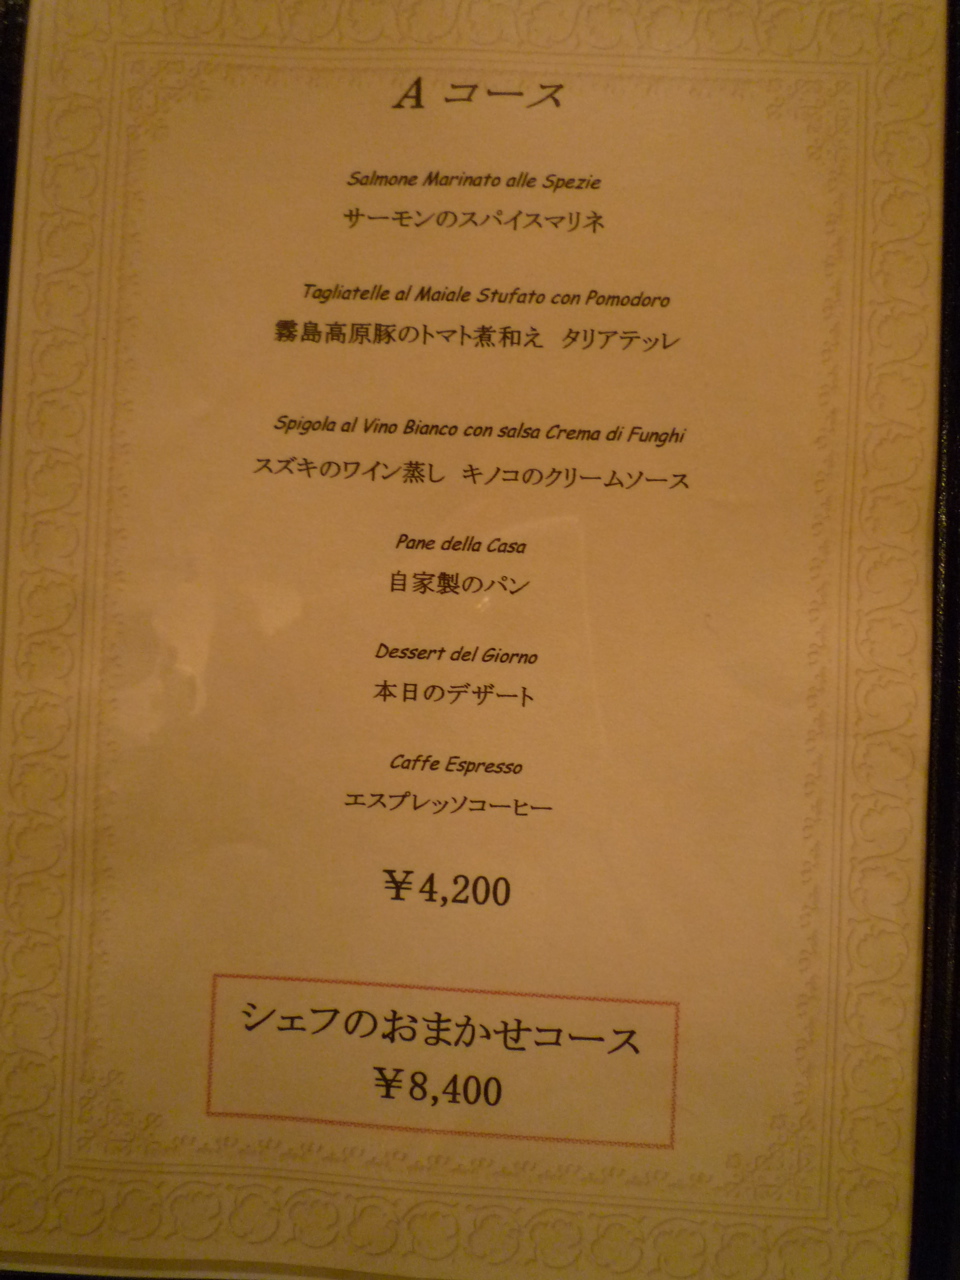 A コース
Salmone Marinato alle Spezie
サーモンのスパイスマリネ
Tagliatelle al Maiale Stufato con Pomodoro
霧島高原豚のトマト煮和え　タリアテッレ
Spigola al Vino Bianco con salsa Crema di Funghi
スズキのワイン蒸し　キノコのクリームソース
Pane della Casa
自家製のパン
Dessert del Giorno
本日のデザート
Caffe Espresso
エスプレッソコーヒー
￥4,200
シェフのおまかせコース
￥8,400